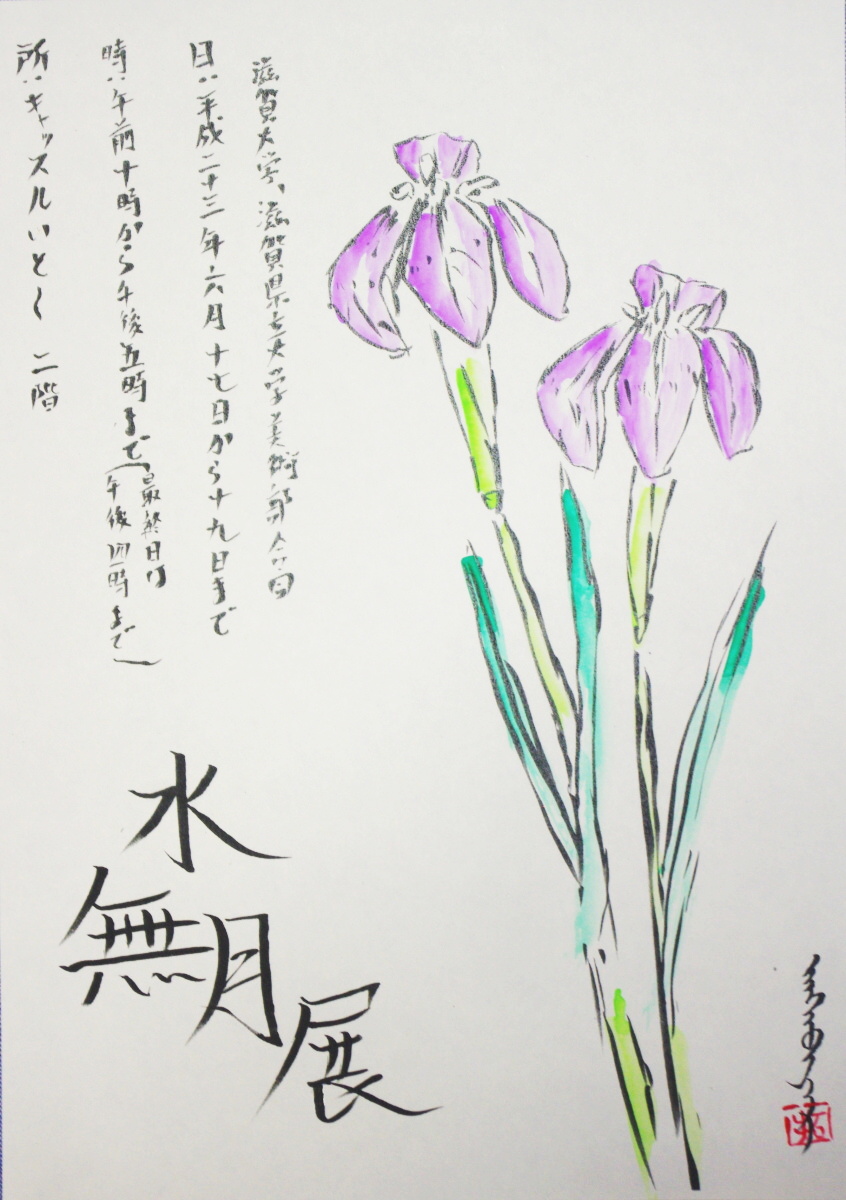 滋賀大学、滋賀県立大学美術部合同
日‥平成二十三年六月十七日から十九日まで
時‥午前十時から午後五時まで(最終日は
午後四時まで)
所‥キャッスルいとく 二階
水無月展